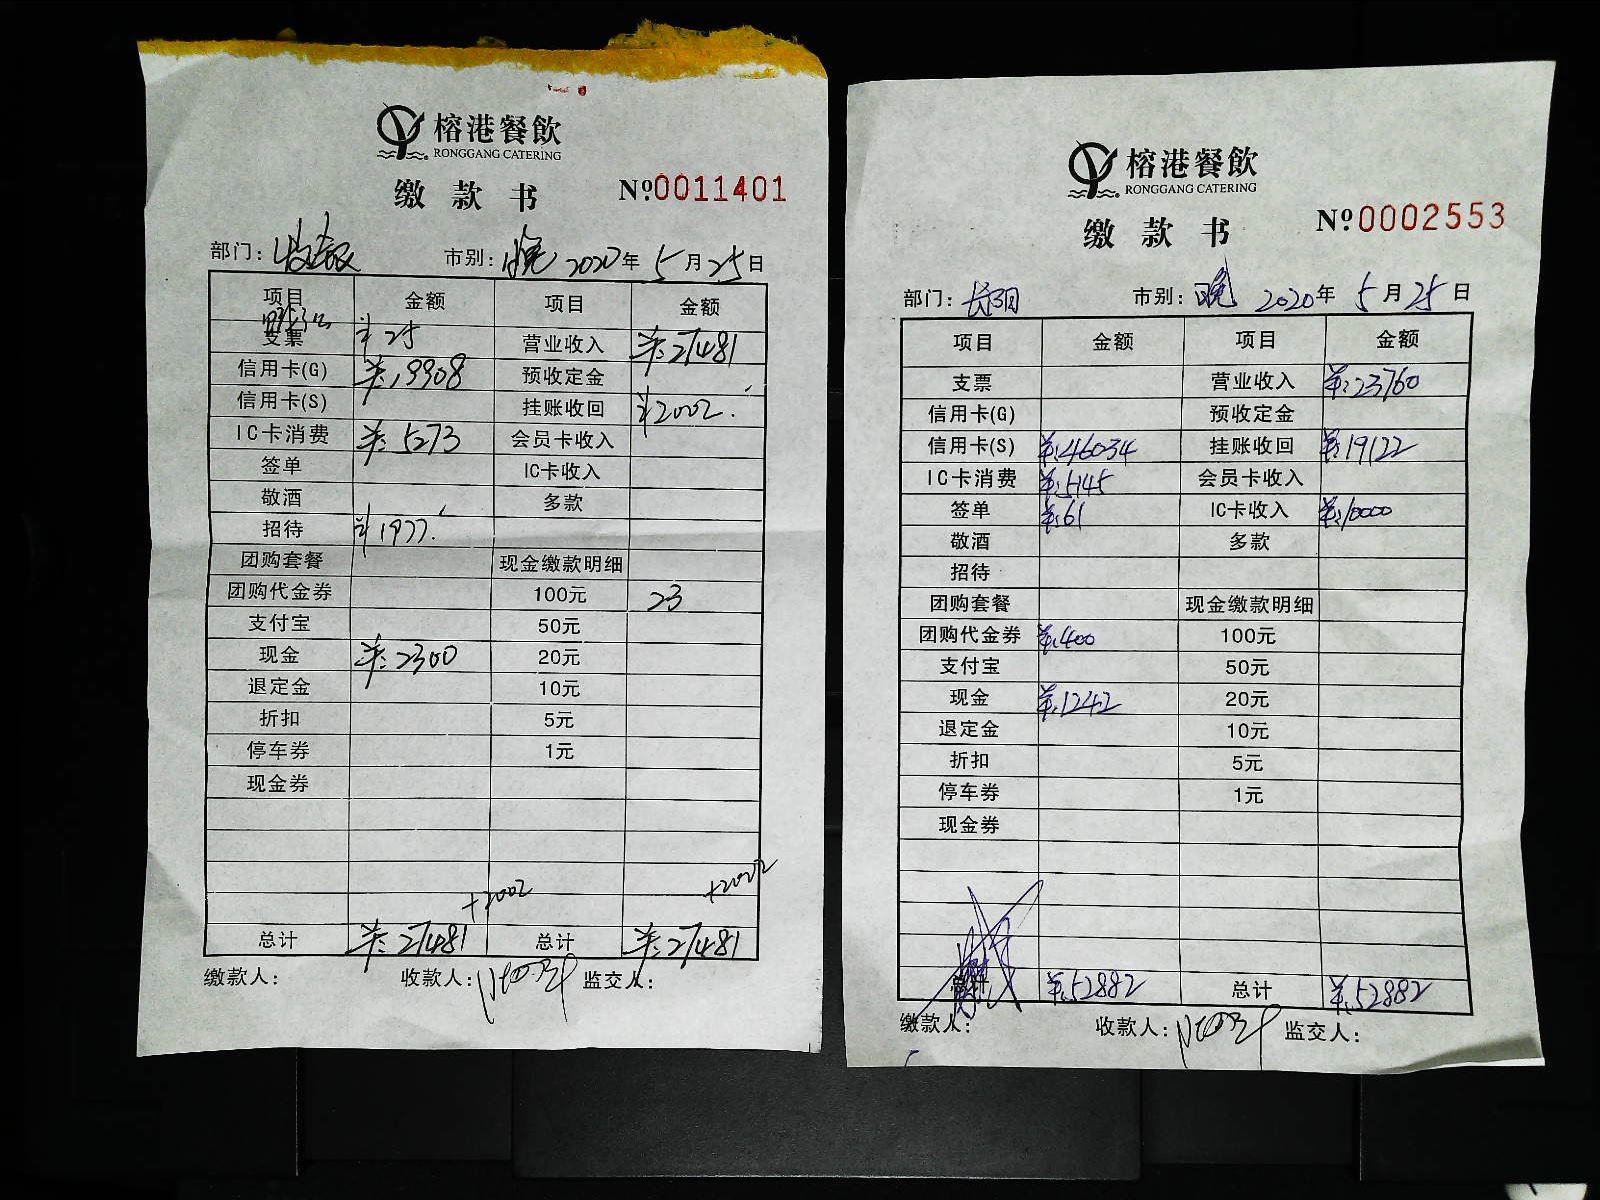 榕港餐飲
RONGGANG CATERING
缴款书 №0011401
部门: 市别:晚 2020年5月25日
项目 金额 项目 金额
支票 ¥25 营业收入 ¥:27481
信用卡(G) ¥:19908 预收定金
信用卡(S) 挂账收回 ¥2002.
IC卡消费 ¥:5273 会员卡收入
签单 IC卡收入
敬酒 多款
招待 ¥1977.
团购套餐 现金缴款明细
团购代金券 100元 23
支付宝 50元
现金 ¥:2300 20元
退定金 10元
折扣 5元
停车券 1元
现金券
+2002 +2002
总计 ¥:27481 总计 ¥:27481
缴款人: 收款人: 监交人:
榕港餐飲
RONGGANG CATERING
缴款书 №0002553
部门: 市别:晚 2020年5月25日
项目 金额 项目 金额
支票 营业收入 ¥:23760
信用卡(G) 预收定金
信用卡(S) ¥:46034 挂账收回 ¥:19122
IC卡消费 ¥:5145 会员卡收入
签单 ¥:61 IC卡收入 ¥:10000
敬酒 多款
招待
团购套餐 现金缴款明细
团购代金券 ¥:400 100元
支付宝 50元
现金 ¥:1242 20元
退定金 10元
折扣 5元
停车券 1元
现金券
总计 ¥:52882 总计 ¥:52882
缴款人: 收款人: 监交人: